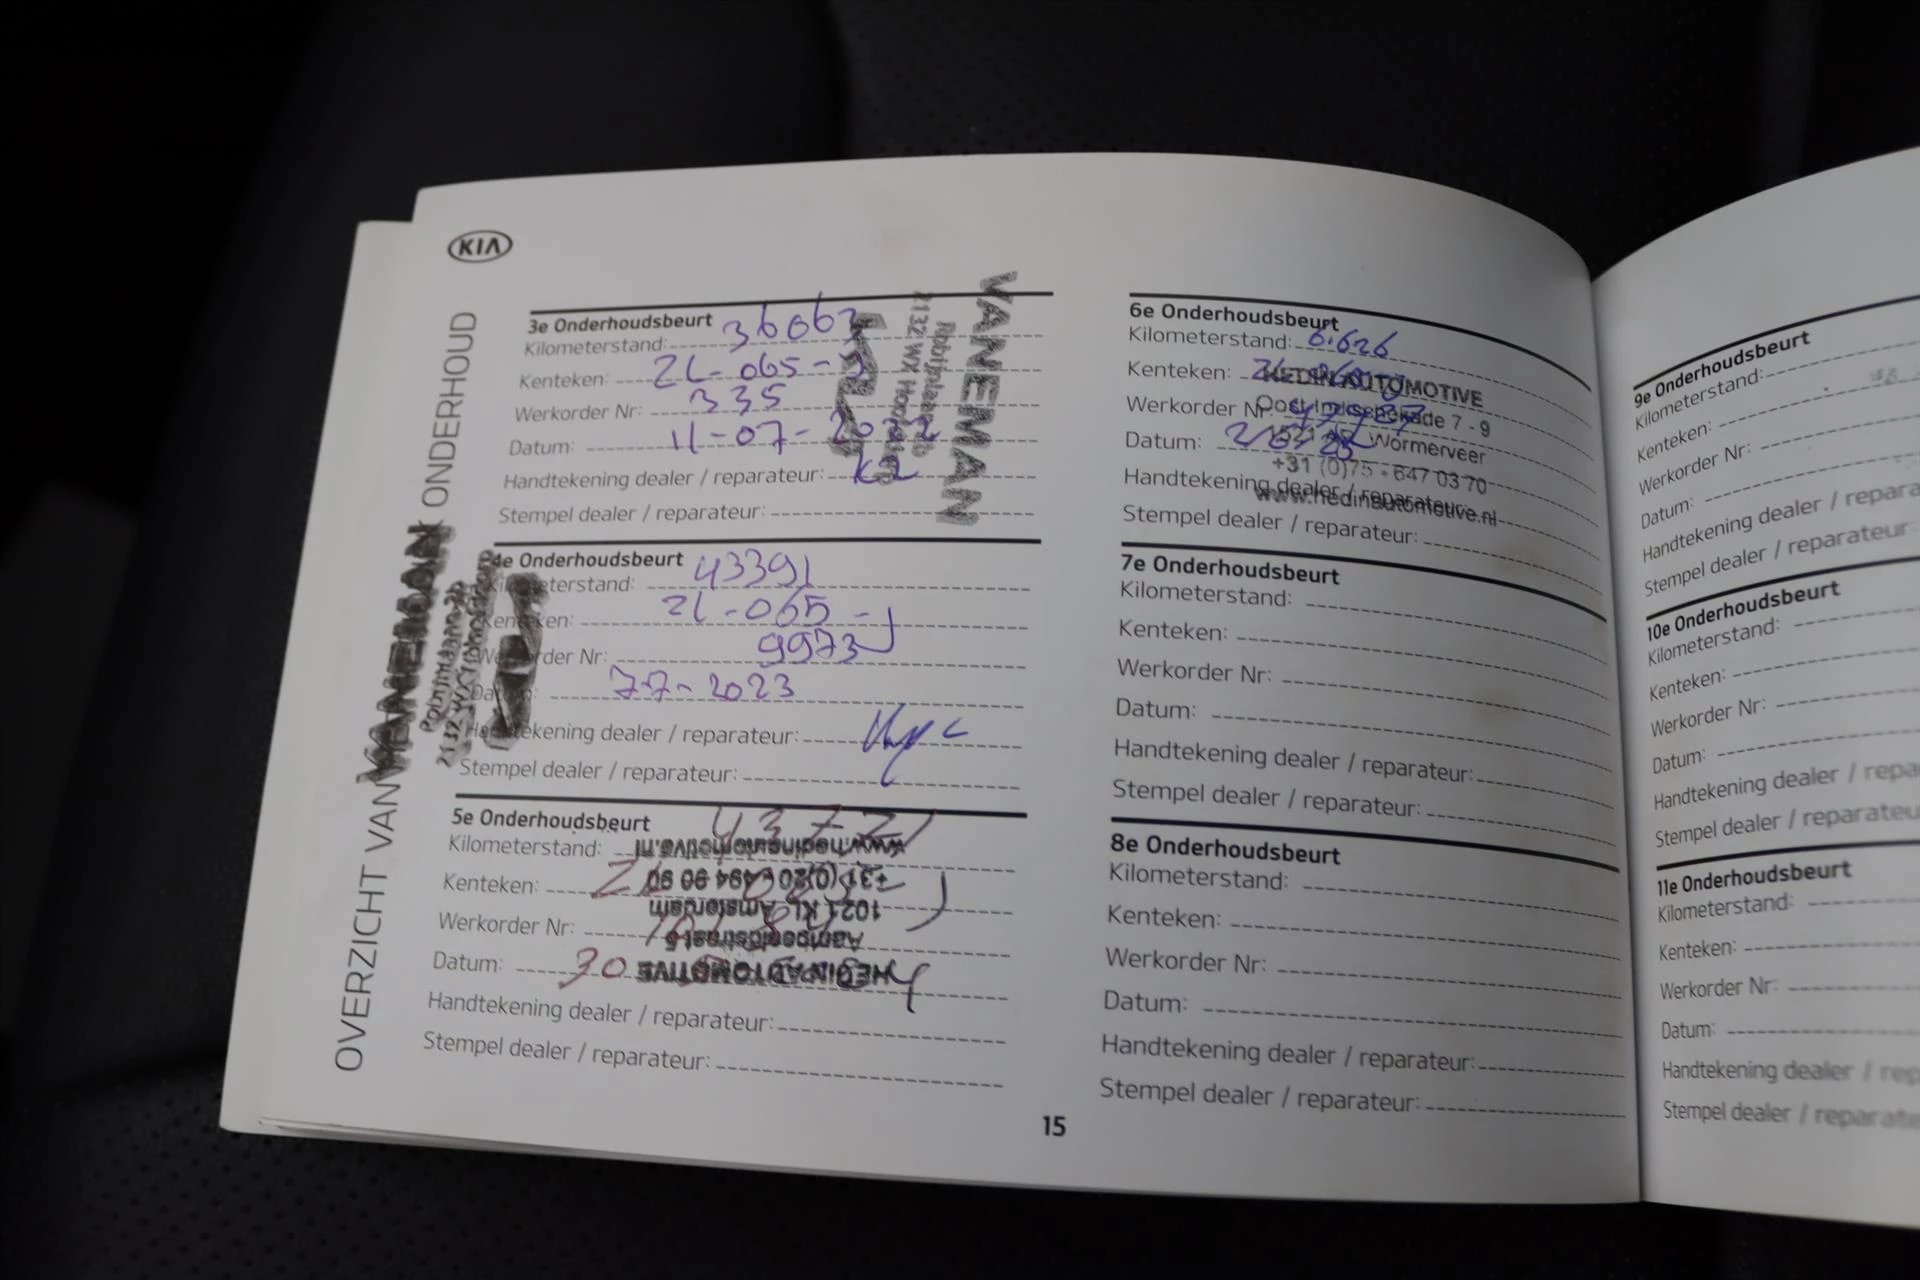 KIA
OVERZICHT VAN ONDERHOUD
3e Onderhoudsbeurt
Kilometerstand: 36063
Kenteken: ZL-065-J
Werkorder Nr: 335
Datum: 11-07-2022
Handtekening dealer / reparateur:
Stempel dealer / reparateur:
VANEMAN
Robijnlaan
2132 WX Hoofddorp
4e Onderhoudsbeurt
Kilometerstand: 43391
Kenteken: ZL-065-J
Werkorder Nr: 9973
Datum: 7-7-2023
Handtekening dealer / reparateur:
Stempel dealer / reparateur:
VANEMAN
5e Onderhoudsbeurt
Kilometerstand:
Kenteken:
Werkorder Nr:
Datum: 30
Handtekening dealer / reparateur:
Stempel dealer / reparateur:
HEDIN AUTOMOTIVE
1021 KL Amsterdam
+31 (0)20 - 494 90 90
www.hedinautomotive.nl
6e Onderhoudsbeurt
Kilometerstand: 6.626
Kenteken:
Werkorder Nr:
Datum:
Handtekening dealer / reparateur:
Stempel dealer / reparateur:
HEDIN AUTOMOTIVE
Oost-Indischekade 7 - 9
1521 Wormerveer
+31 (0)75 - 647 03 70
www.hedinautomotive.nl
7e Onderhoudsbeurt
Kilometerstand:
Kenteken:
Werkorder Nr:
Datum:
Handtekening dealer / reparateur:
Stempel dealer / reparateur:
8e Onderhoudsbeurt
Kilometerstand:
Kenteken:
Werkorder Nr:
Datum:
Handtekening dealer / reparateur:
Stempel dealer / reparateur:
15
9e Onderhoudsbeurt
Kilometerstand:
Kenteken:
Werkorder Nr:
Datum:
Handtekening dealer / repara
Stempel dealer / reparateur:
10e Onderhoudsbeurt
Kilometerstand:
Kenteken:
Werkorder Nr:
Datum:
Handtekening dealer / repa
Stempel dealer / reparateu
11e Onderhoudsbeurt
Kilometerstand:
Kenteken:
Werkorder Nr:
Datum:
Handtekening dealer / rep
Stempel dealer / reparate